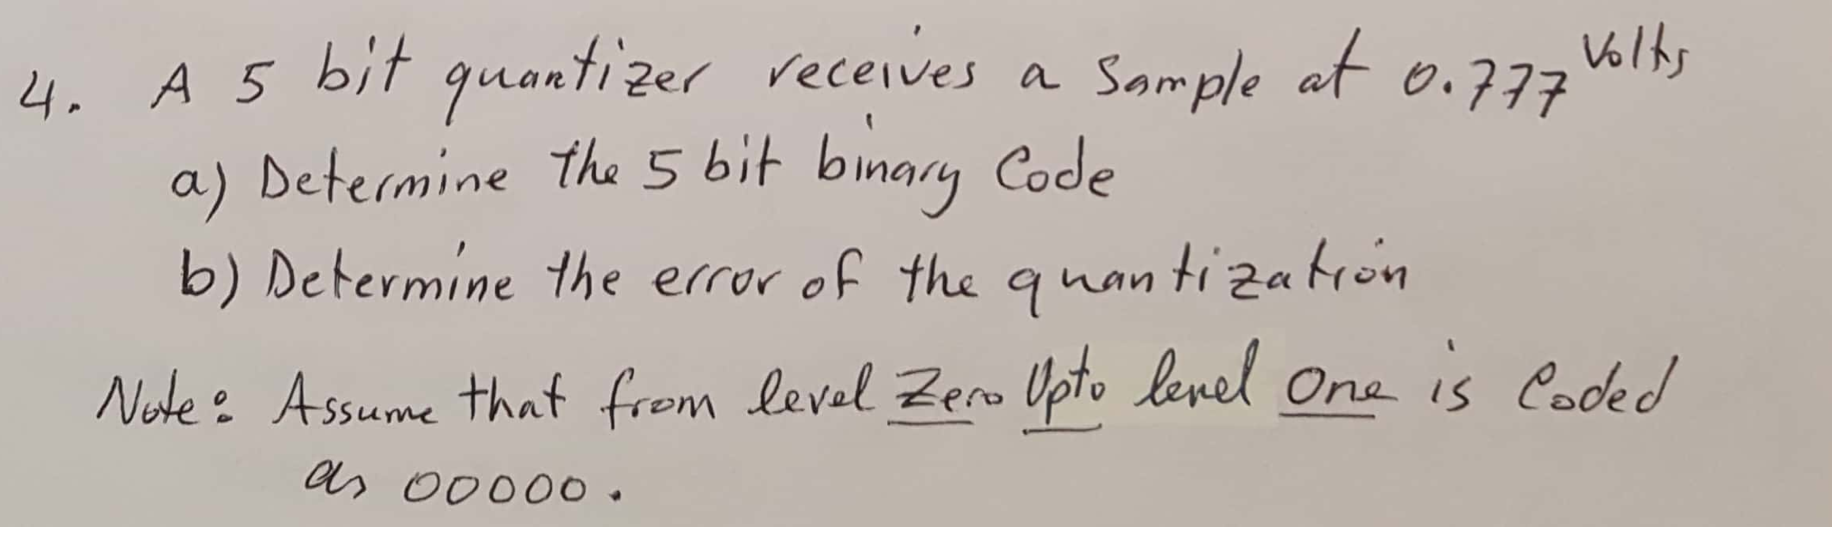 4. A 5 bit quantizer receives a Sample at 0.777 Volts
a) Determine the 5 bit binary Code
b) Determine the error of the quantization
Note: Assume that from level Zero Upto level One is Coded
as 00000.